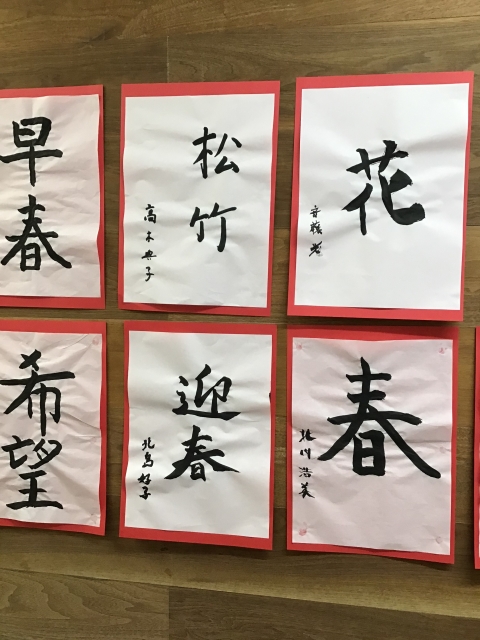 早春
松竹
高木典子
花
希望
迎春
北島好子
春
浩美